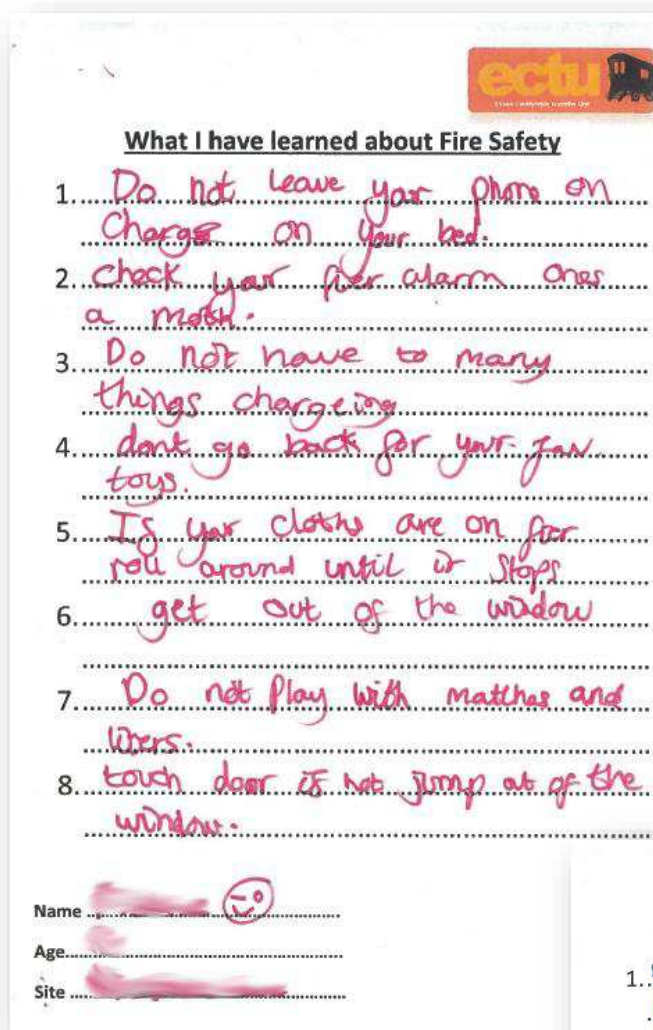 ectu
What I have learned about Fire Safety
1. Do not Leave your phone on
Charge on your bed.
2. check your fier alarm ones
a moth.
3. Do not have to many
things chargeing
4. dont go back for your fav
toys.
5. If your cloths are on fier
roll around until it stops
6. get out of the window
7. Do not Play with matthes and
liters.
8. touch door if hot jump out of the
window.
Name
Age
Site
1.